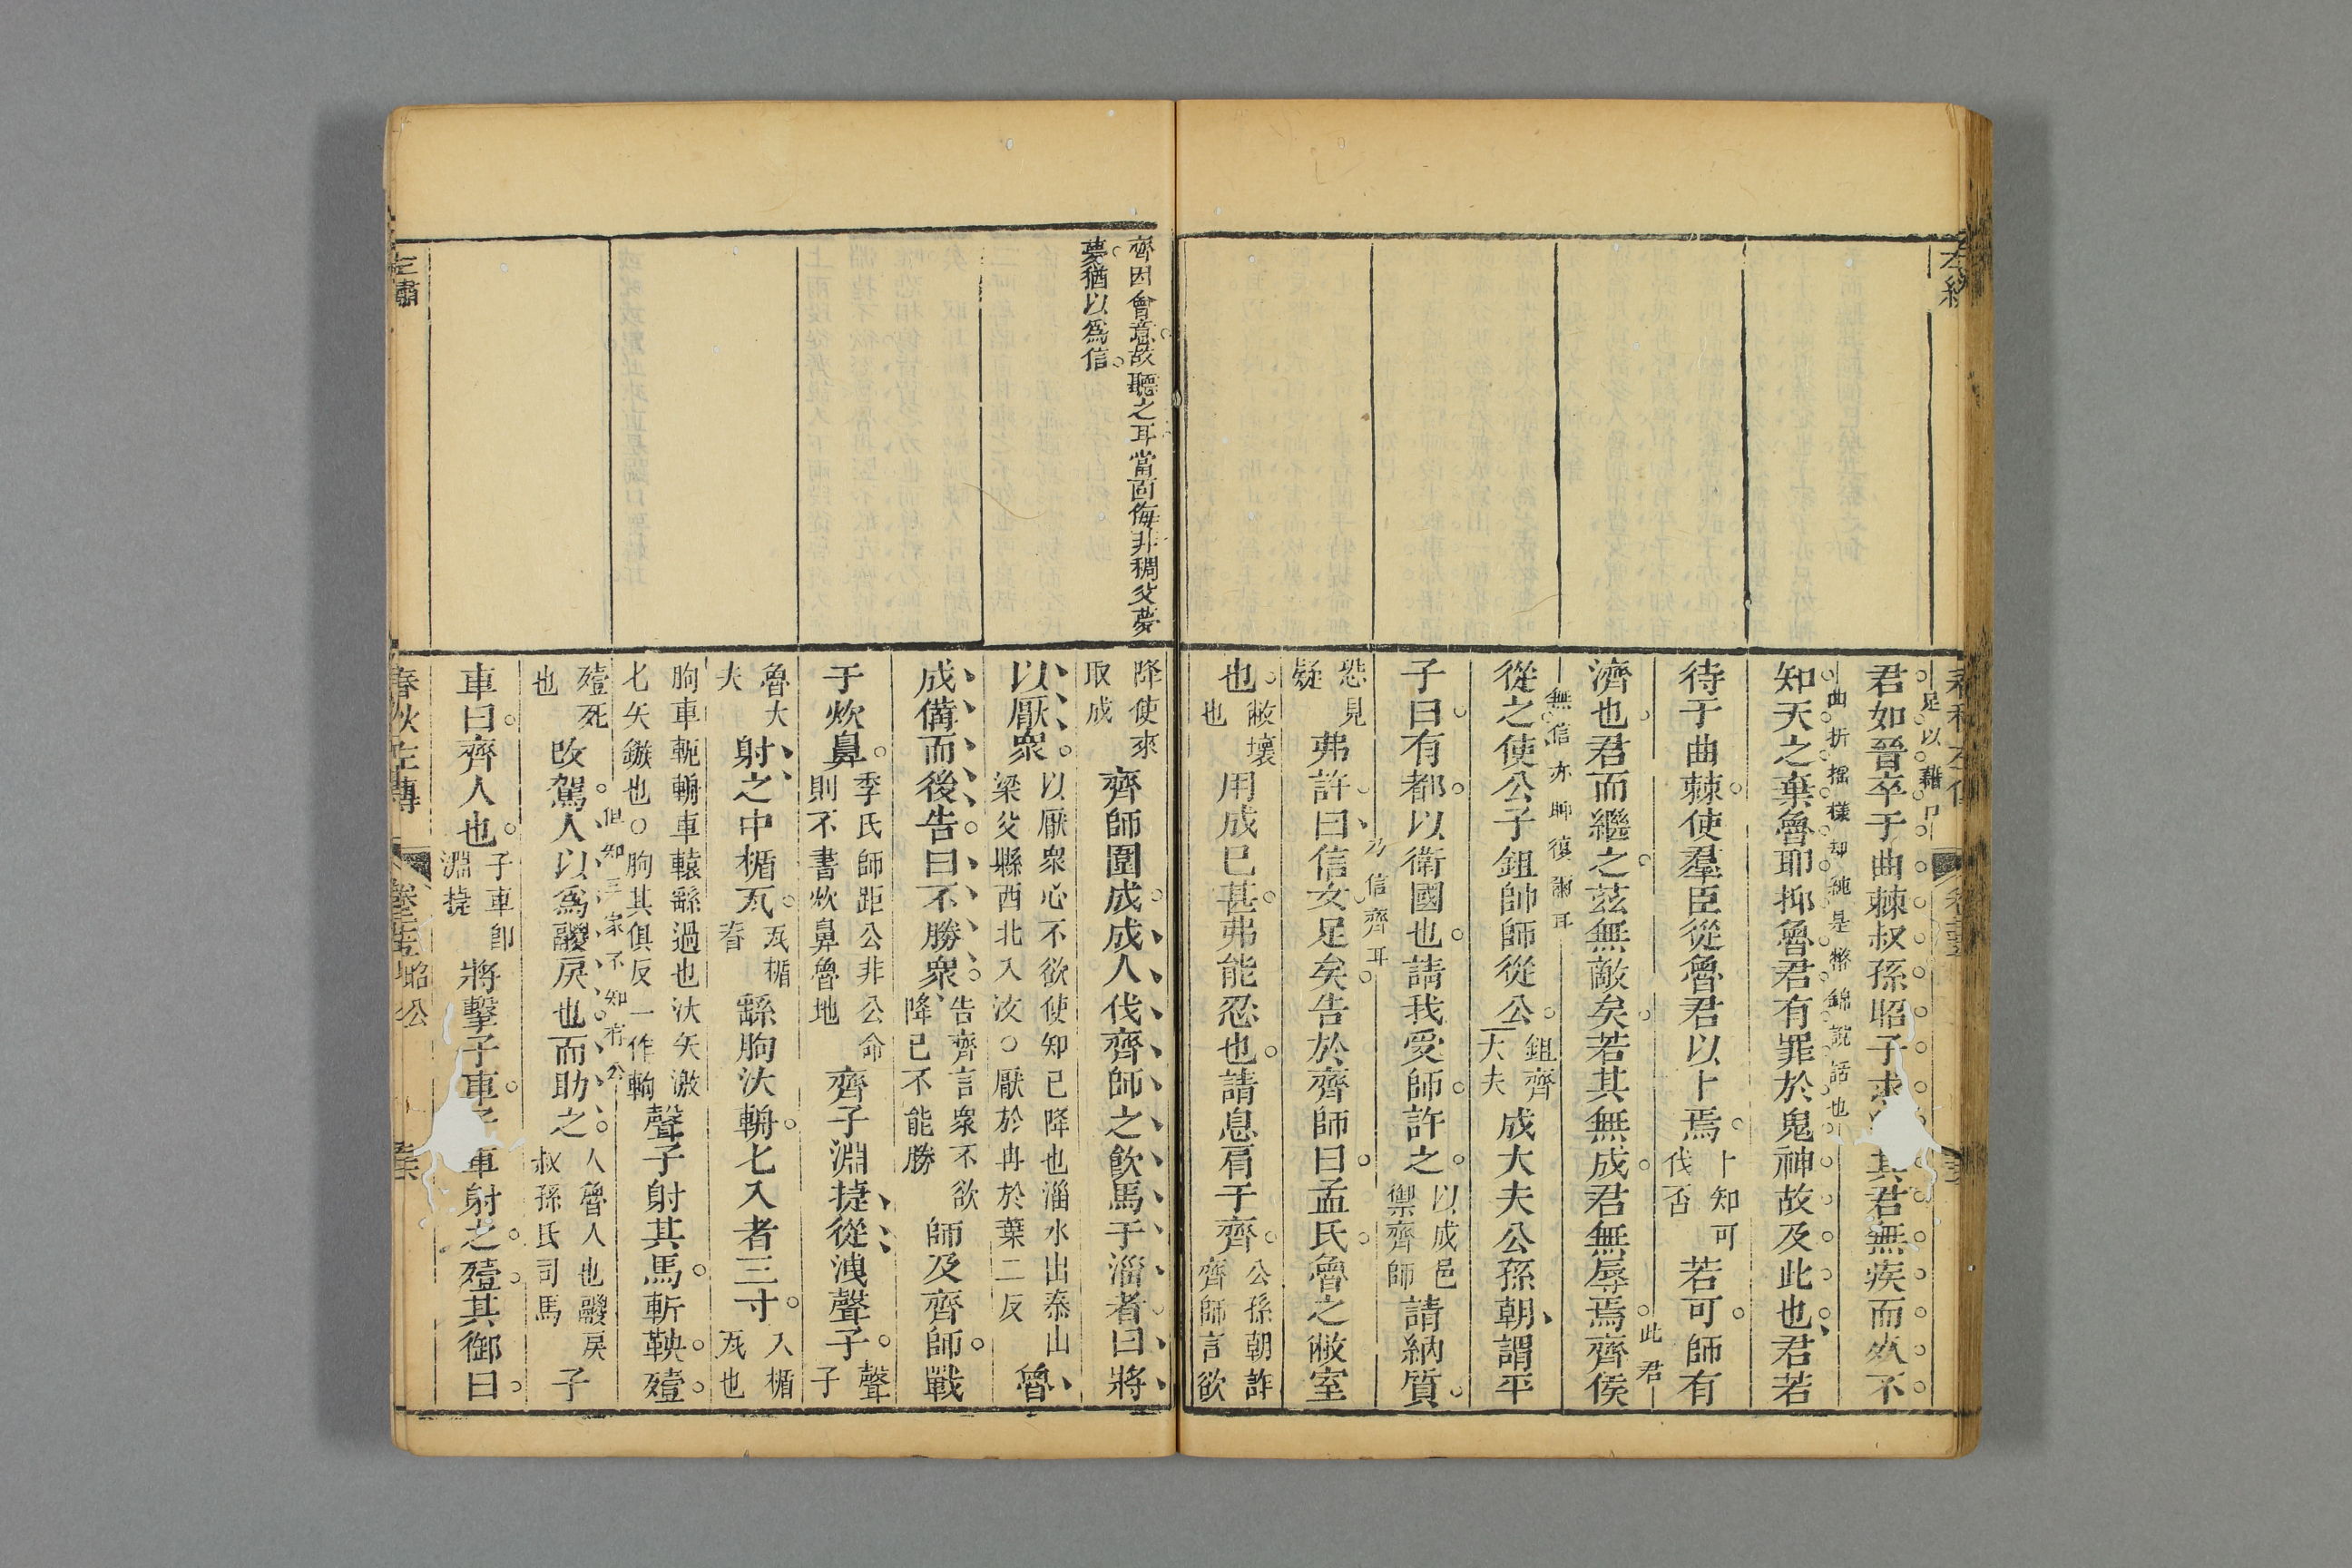 左繡
春秋左傳
足以藉口
君如晉卒于曲棘叔孫昭子求其君無疾而死不
曲折搖樣却純是幣錦說話也
知天之棄魯耶抑魯君有罪於鬼神故及此也君若
待于曲棘使羣臣從魯君以卜焉
卜知可
伐否
若可師有
濟也君而繼之茲無敵矣若其無成君無辱焉齊侯
此君
無信亦聊復爾耳
從之使公子鉏帥師從公
鉏齊
大夫
成大夫公孫朝謂平
子曰有都以衛國也請我受師許之
以成邑
禦齊師
請納質
乃信齊耳
恐見
疑
弗許曰信女足矣告於齊師曰孟氏魯之敝室
也
敝壞
也
用成已甚弗能忍也請息肩于齊
公孫朝詐
齊師言欲
齊因會意故聽之耳當面侮弄稠父夢
夢猶以為信
降使來
取成
齊師圍成成人伐齊師之飲馬于淄者曰將
以厭衆
以厭衆心不欲使知已降也淄水出泰山
梁父縣西北入汶○厭於冉於葉二反
魯
成備而後告曰不勝衆
告齊言衆不欲
降已不能勝
師及齊師戰
于炊鼻
季氏師距公非公命
則不書炊鼻魯地
齊子淵捷從洩聲子
聲
子
魯大
夫
射之中楯瓦
瓦楯
脊
繇胊汏輈匕入者三寸
入楯
瓦也
胊車軛輈車轅繇過也汏矢激
匕矢鏃也○胊其俱反一作軥
聲子射其馬斬鞅殪
但知三家不知有公
殪死
也
改駕人以為鬷戾也而助之
人魯人也鬷戾
叔孫氏司馬
子
車曰齊人也
子車卽
淵捷
將擊子車子車射之殪其御曰
左繡
春秋左傳
昭公